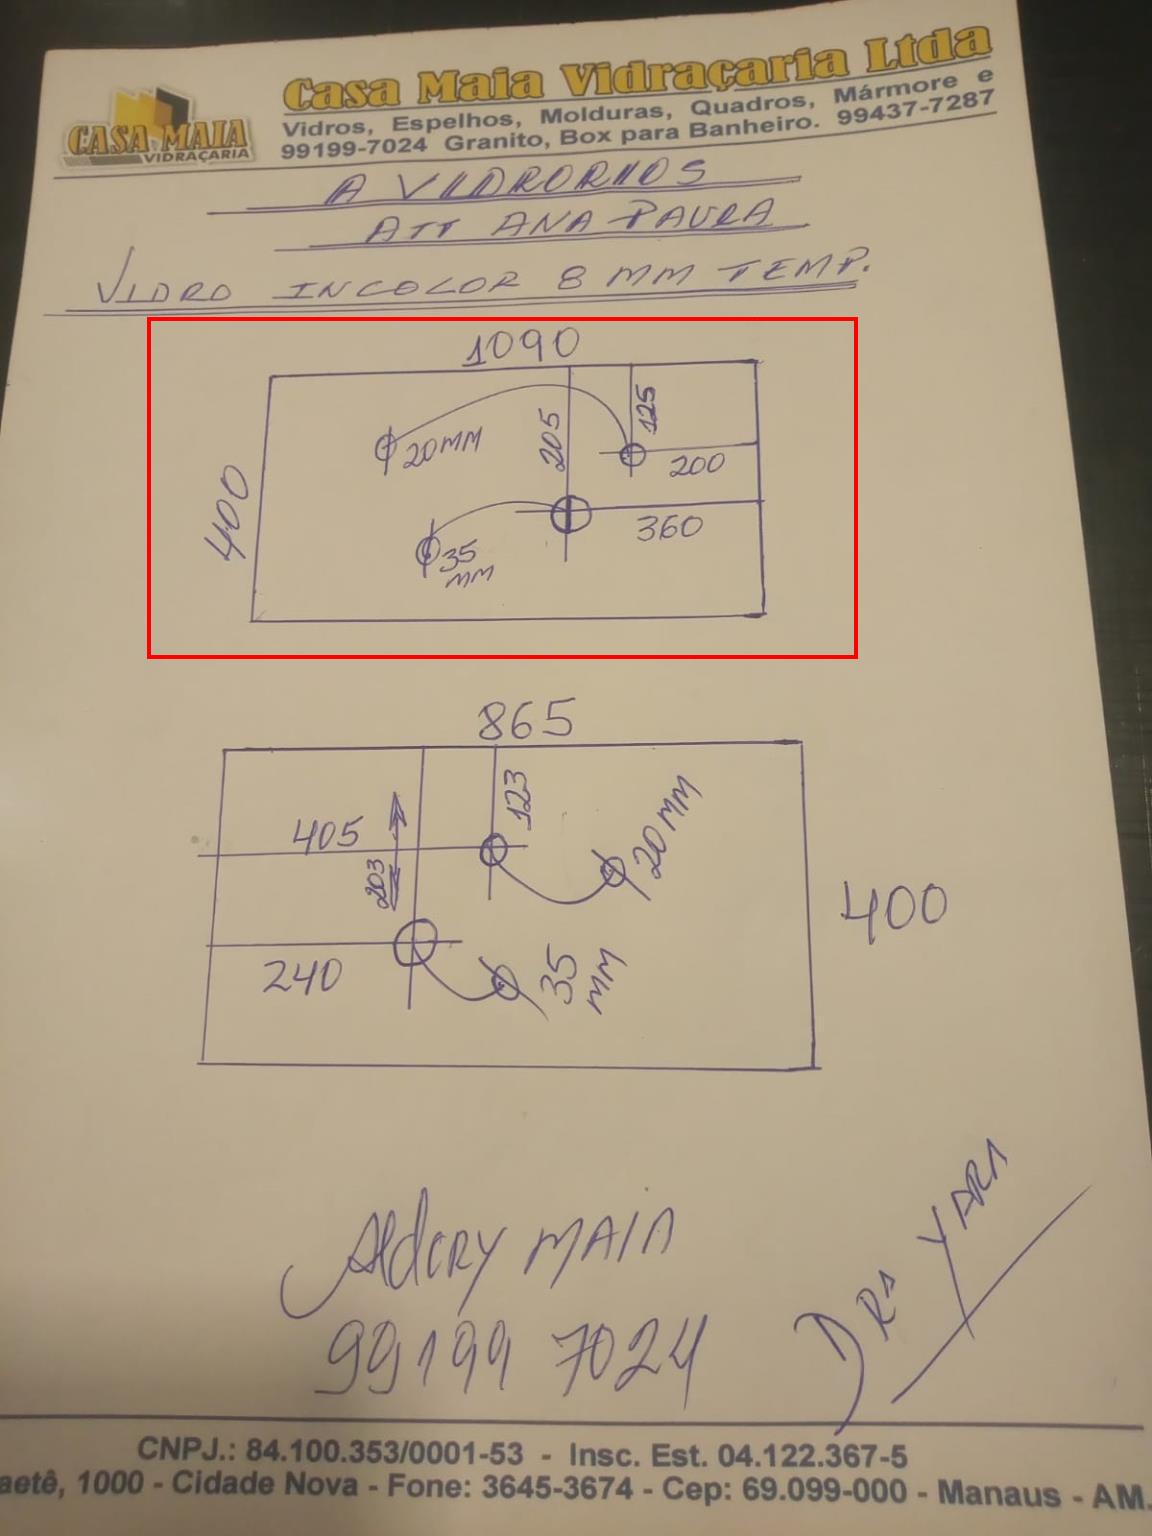 Casa Maia Vidraçaria Ltda
Vidros, Espelhos, Molduras, Quadros, Mármore e
99199-7024 Granito, Box para Banheiro. 99437-7287
CASA MAIA
VIDRAÇARIA
A VIDRORIOS
ATT ANA PAULA
VIDRO INCOLOR 8 MM TEMP.
1090
125
205
20 MM
200
400
360
35
MM
865
123
20 MM
405
203
400
240
35
MM
Aldery MAIA
DRA YARA
99199 7024
CNPJ.: 84.100.353/0001-53 - Insc. Est. 04.122.367-5
aetê, 1000 - Cidade Nova - Fone: 3645-3674 - Cep: 69.099-000 - Manaus - AM.